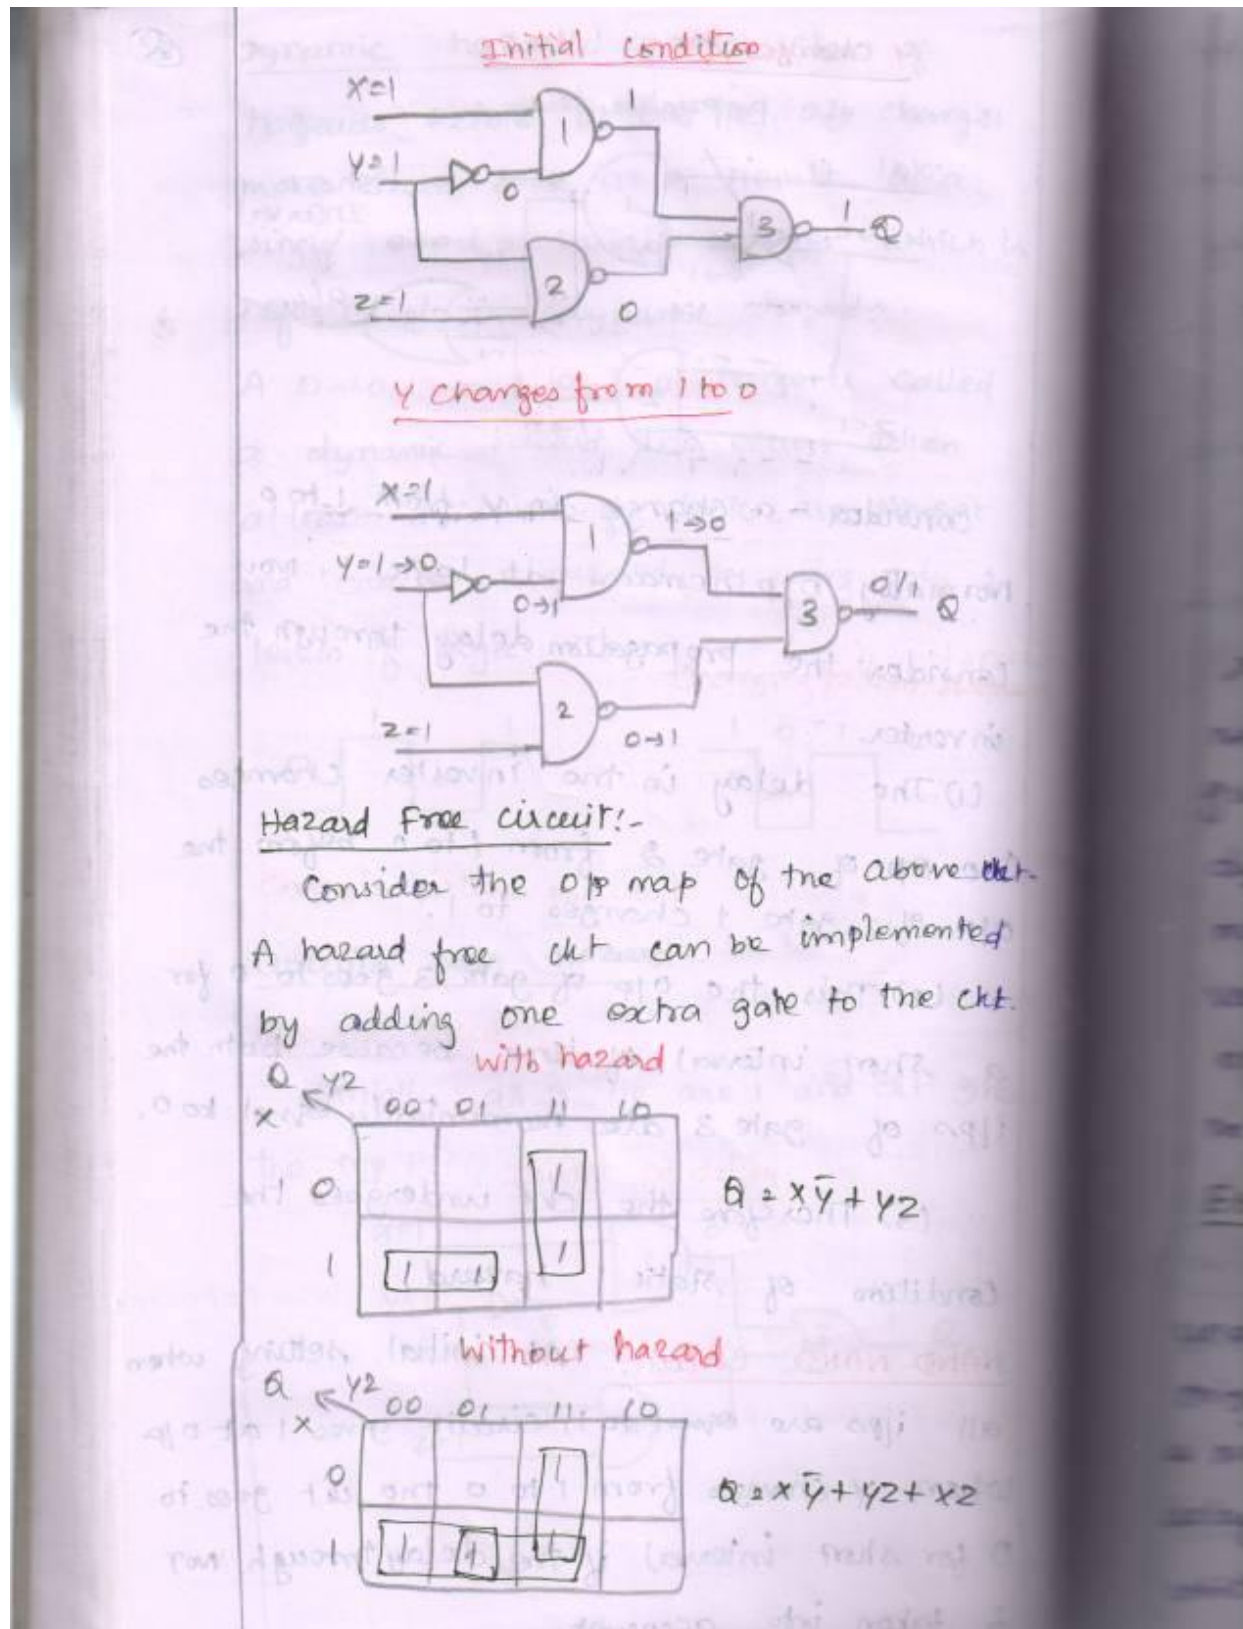 Initial Condition
X=1
1
1
Y=1
0
3
1
Q
2
Z=1
0
Y changes from 1 to 0
X=1
1
1→0
Y=1→0
0→1
0/1
3
Q
2
Z=1
0→1
Hazard Free circuit:-
Consider the o/p map of the above ckt.
A hazard free ckt can be implemented
by adding one extra gate to the ckt.
with hazard
Q YZ
X 00 01 11 10
0 1
Q = X Ȳ + YZ
1 1 1 1
Without hazard
Q YZ
X 00 01 11 10
0 1
Q = X Ȳ + YZ + XZ
1 1 1 1